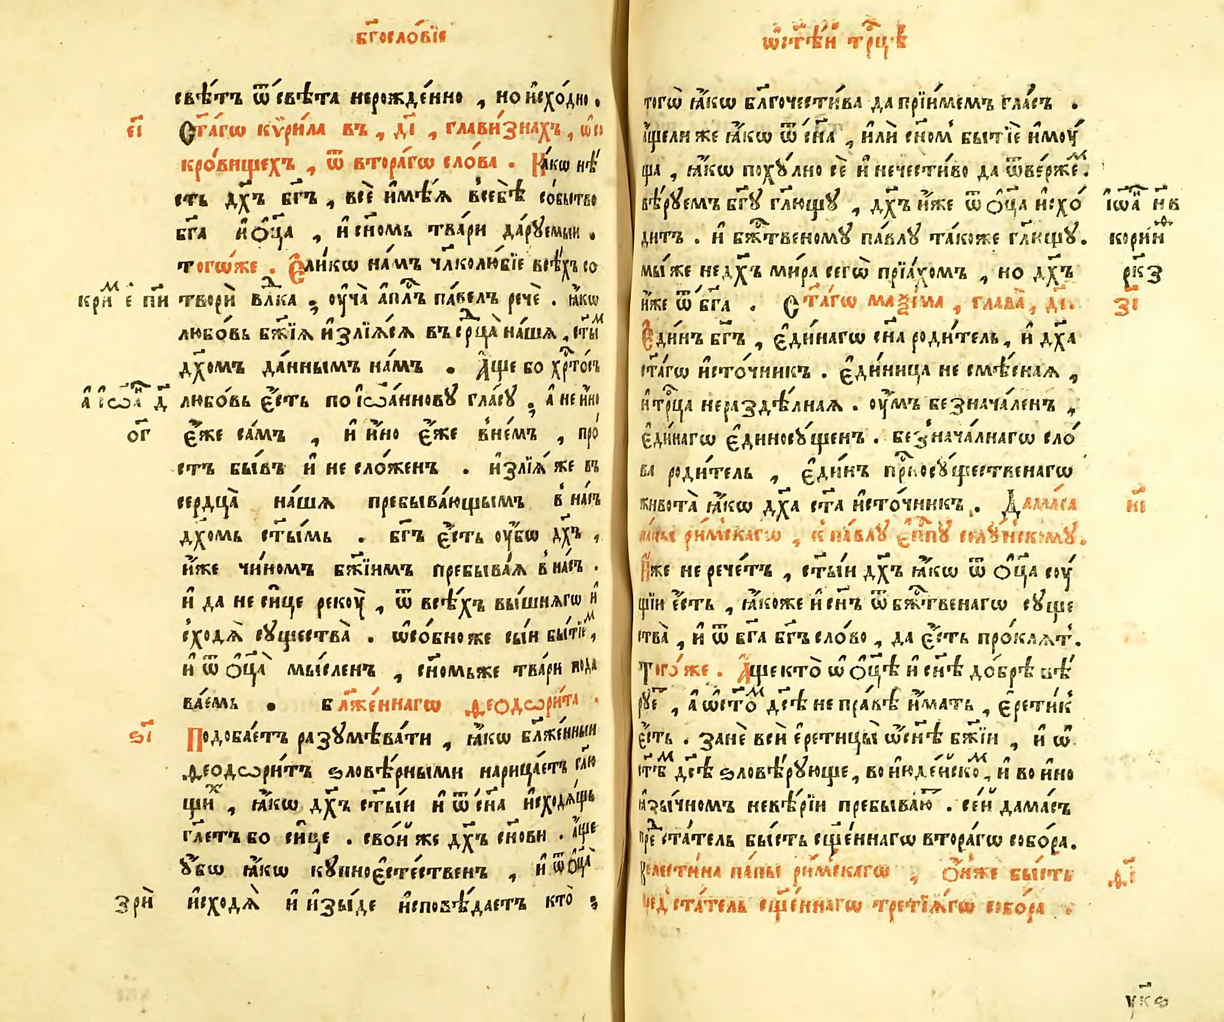 бг҃ословїе
свѣ́тъ ѿ свѣ́та нерожде́нно , но и҆схо́дно .
є҃і
Ст҃а́гѡ кѷри́ла въ , д҃і , глави́знахъ ,
кро́вищехъ , ѿ втора́гѡ сло́ва . Ꙗ҆́кѡ нѣ́
сть дх҃ъ бг҃ъ , всѐ и҆мѣ́ѧ всебѣ̀ со́бьство
бг҃а и҆ ѻ҆ц҃а , и҆ сн҃омъ тва́ри да́руемыи .
тогѡ́же . Є҆ли́кѡ на́мъ чл҃колю́бїе всѣ́хъ со
кри є҃ п҃и
творѝ влⷣка , ᲂу҆ча̀ а҆пⷭ҇лъ па́велъ речѐ . ꙗ҆́кѡ
любо́вь бж҃їѧ и҆злїѧ́сѧ въ срⷣца на́шѧ , ст҃ыⷨ
дх҃омъ да́ннымъ на́мъ . А҆́ще бо хрⷭ҇то́съ
любо́вь є҆́сть по і҆ѡа́ннову гла́су , а҆ не и҆́но
ѻ҃г
є҆́же са́мъ , и҆ и҆́но є҆́же в не́мъ , про́
стъ бы́въ и҆ не сло́женъ . и҆злїѧ́ же въ
сердца̀ на́шѧ пребыва́ющымъ в на́съ
дх҃омъ ст҃ы́мъ . бг҃ъ є҆́сть ᲂу҆́бѡ дх҃ъ ,
и҆́же чи́номъ бж҃їимъ пребыва́ѧ в на́съ .
и҆ да не си́це рекꙋ̀ , ѿ всѣ́хъ вы́шнѧгѡ и҆
схо́дѧ существа̀ . ѡ҆со́бно же сы́й бытїеⷨ ,
и҆ ѿ ѻ҆ц҃а̀ мы́сленъ , сн҃омъ же тва́ри пода
ва́емь . бл҃же́ннагѡ ѳеодѡри́та .
ѕ҃і
Подоба́етъ разумѣва́ти , ꙗ҆́кѡ бл҃же́нныи
ѳеодѡри́тъ ѕловѣ́рными нарица́етъ гл҃ю
щиⷯ , ꙗ҆́кѡ дх҃ъ ст҃ы́и и҆ ѿ сн҃а и҆схо́дѧщь
гл҃етъ бо си́це . сво́й же дх҃ъ сн҃ови . а҆́ще
ᲂу҆́бѡ ꙗ҆́кѡ купноє҆сте́ственъ , и҆ ѿ ѻ҆ц҃а̀
зрѝ
и҆схо́дѧ и҆ и҆зы́де и҆сповѣ́даетъ кто̀ ;
ѡ҆ ст҃ѣ́й трⷪ҇цѣ
тогѡ̀ ꙗ҆́кѡ бл҃гочести́ва да прїи́мемъ гла́съ .
а҆́ще ли же ꙗ҆́кѡ ѿ сн҃а , и҆лѝ сн҃омъ бытїѐ и҆мᲂу́
ща , ꙗ҆́кѡ поху́лно сѐ и҆ нечести́во да ѿве́ржеⷨ .
вѣ́руемъ бг҃у гл҃ющу , дх҃ъ и҆́же ѿ ѻ҆ц҃а и҆схо́
дитъ . и҆ бжⷭ҇твеному па́влу та́коже гл҃ющу .
корин҃
мы́ же не дх҃ъ мира сегѡ̀ прїѧ́хомъ , но дх҃ъ
рк҃з
и҆́же ѿ бг҃а . Ст҃а́гѡ маѯі́ма , глава̀ , д҃і .
з҃і
Є҆ди́нъ бг҃ъ , є҆ди́нагѡ сн҃а роди́тель , и҆ дх҃а
ст҃а́гѡ и҆сто́чникъ . є҆ди́ница не смѣ́снаѧ ,
и҆ трⷪ҇ца нераздѣ́лнаѧ . ᲂу҆́мъ безнача́ленъ ,
є҆ди́нагѡ є҆диносу́щенъ . безнача́лнагѡ сло́
ва роди́тель , є҆ди́нъ присносу́щественагѡ
живота̀ ꙗ҆́кѡ дх҃а ст҃а и҆сто́чникъ . Дама́са
и҃і
па́пы ри́мскагѡ , к па́влу є҆пⷭ҇пу солу́нскому .
И҆́же не рече́тъ , ст҃ы́и дх҃ъ ꙗ҆́кѡ ѿ ѻ҆ц҃а су́
щїи є҆́сть , ꙗ҆́коже и҆ сн҃ъ ѿ бжⷭ҇твенагѡ суще
ства̀ , и҆ ѿ бг҃а бг҃ъ сло́во , да є҆́сть про́клѧтъ .
Того́же . А҆́ще кто̀ ѡ҆ ѻ҆ц҃ѣ и҆ сн҃ѣ до́брѣ вѣ́
руеⷮ , а҆ ѡ҆ ст҃оⷨ дс҃ѣ не пра́вѣ и҆́мать , є҆рети́к
є҆́сть . занѐ всѝ є҆ретицы̀ ѡ҆ сн҃ѣ бж҃їи , и҆ ѡ҆
ст҃ѣⷨ дс҃ѣ ѕловѣ́рующе , во и҆юде́йскоⷨ , и҆ во и҆но
ꙗ҆зы́чномъ невѣ́рїи пребыва́юⷮ . се́й дама́съ
преⷣста́тель бы́сть сщ҃е́ннагѡ втора́гѡ собо́ра .
келести́на па́пы ри́мскагѡ , ѻ҆́нже бы́сть
ѳ҃і
предста́тель сщ҃е́ннагѡ тре́тїѧгѡ собо́ра .
ук҃ѕ